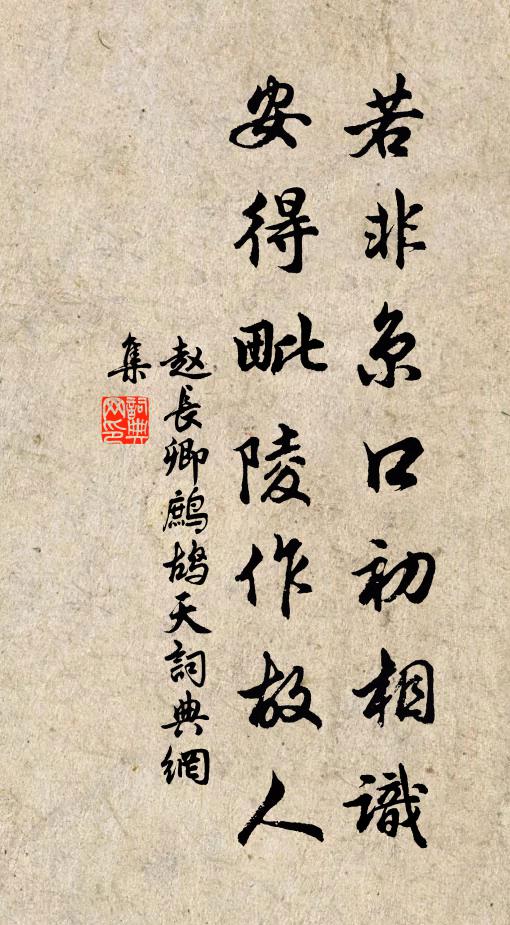 若非京口初相識
安得毗陵作故人
赵長卿鷓鴣天詞典網
集
詞典
网印